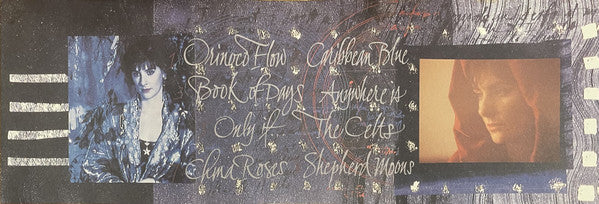 Orinoco Flow Caribbean Blue
Book of Days Anywhere is
Only if The Celts
China Roses Shepherd Moons